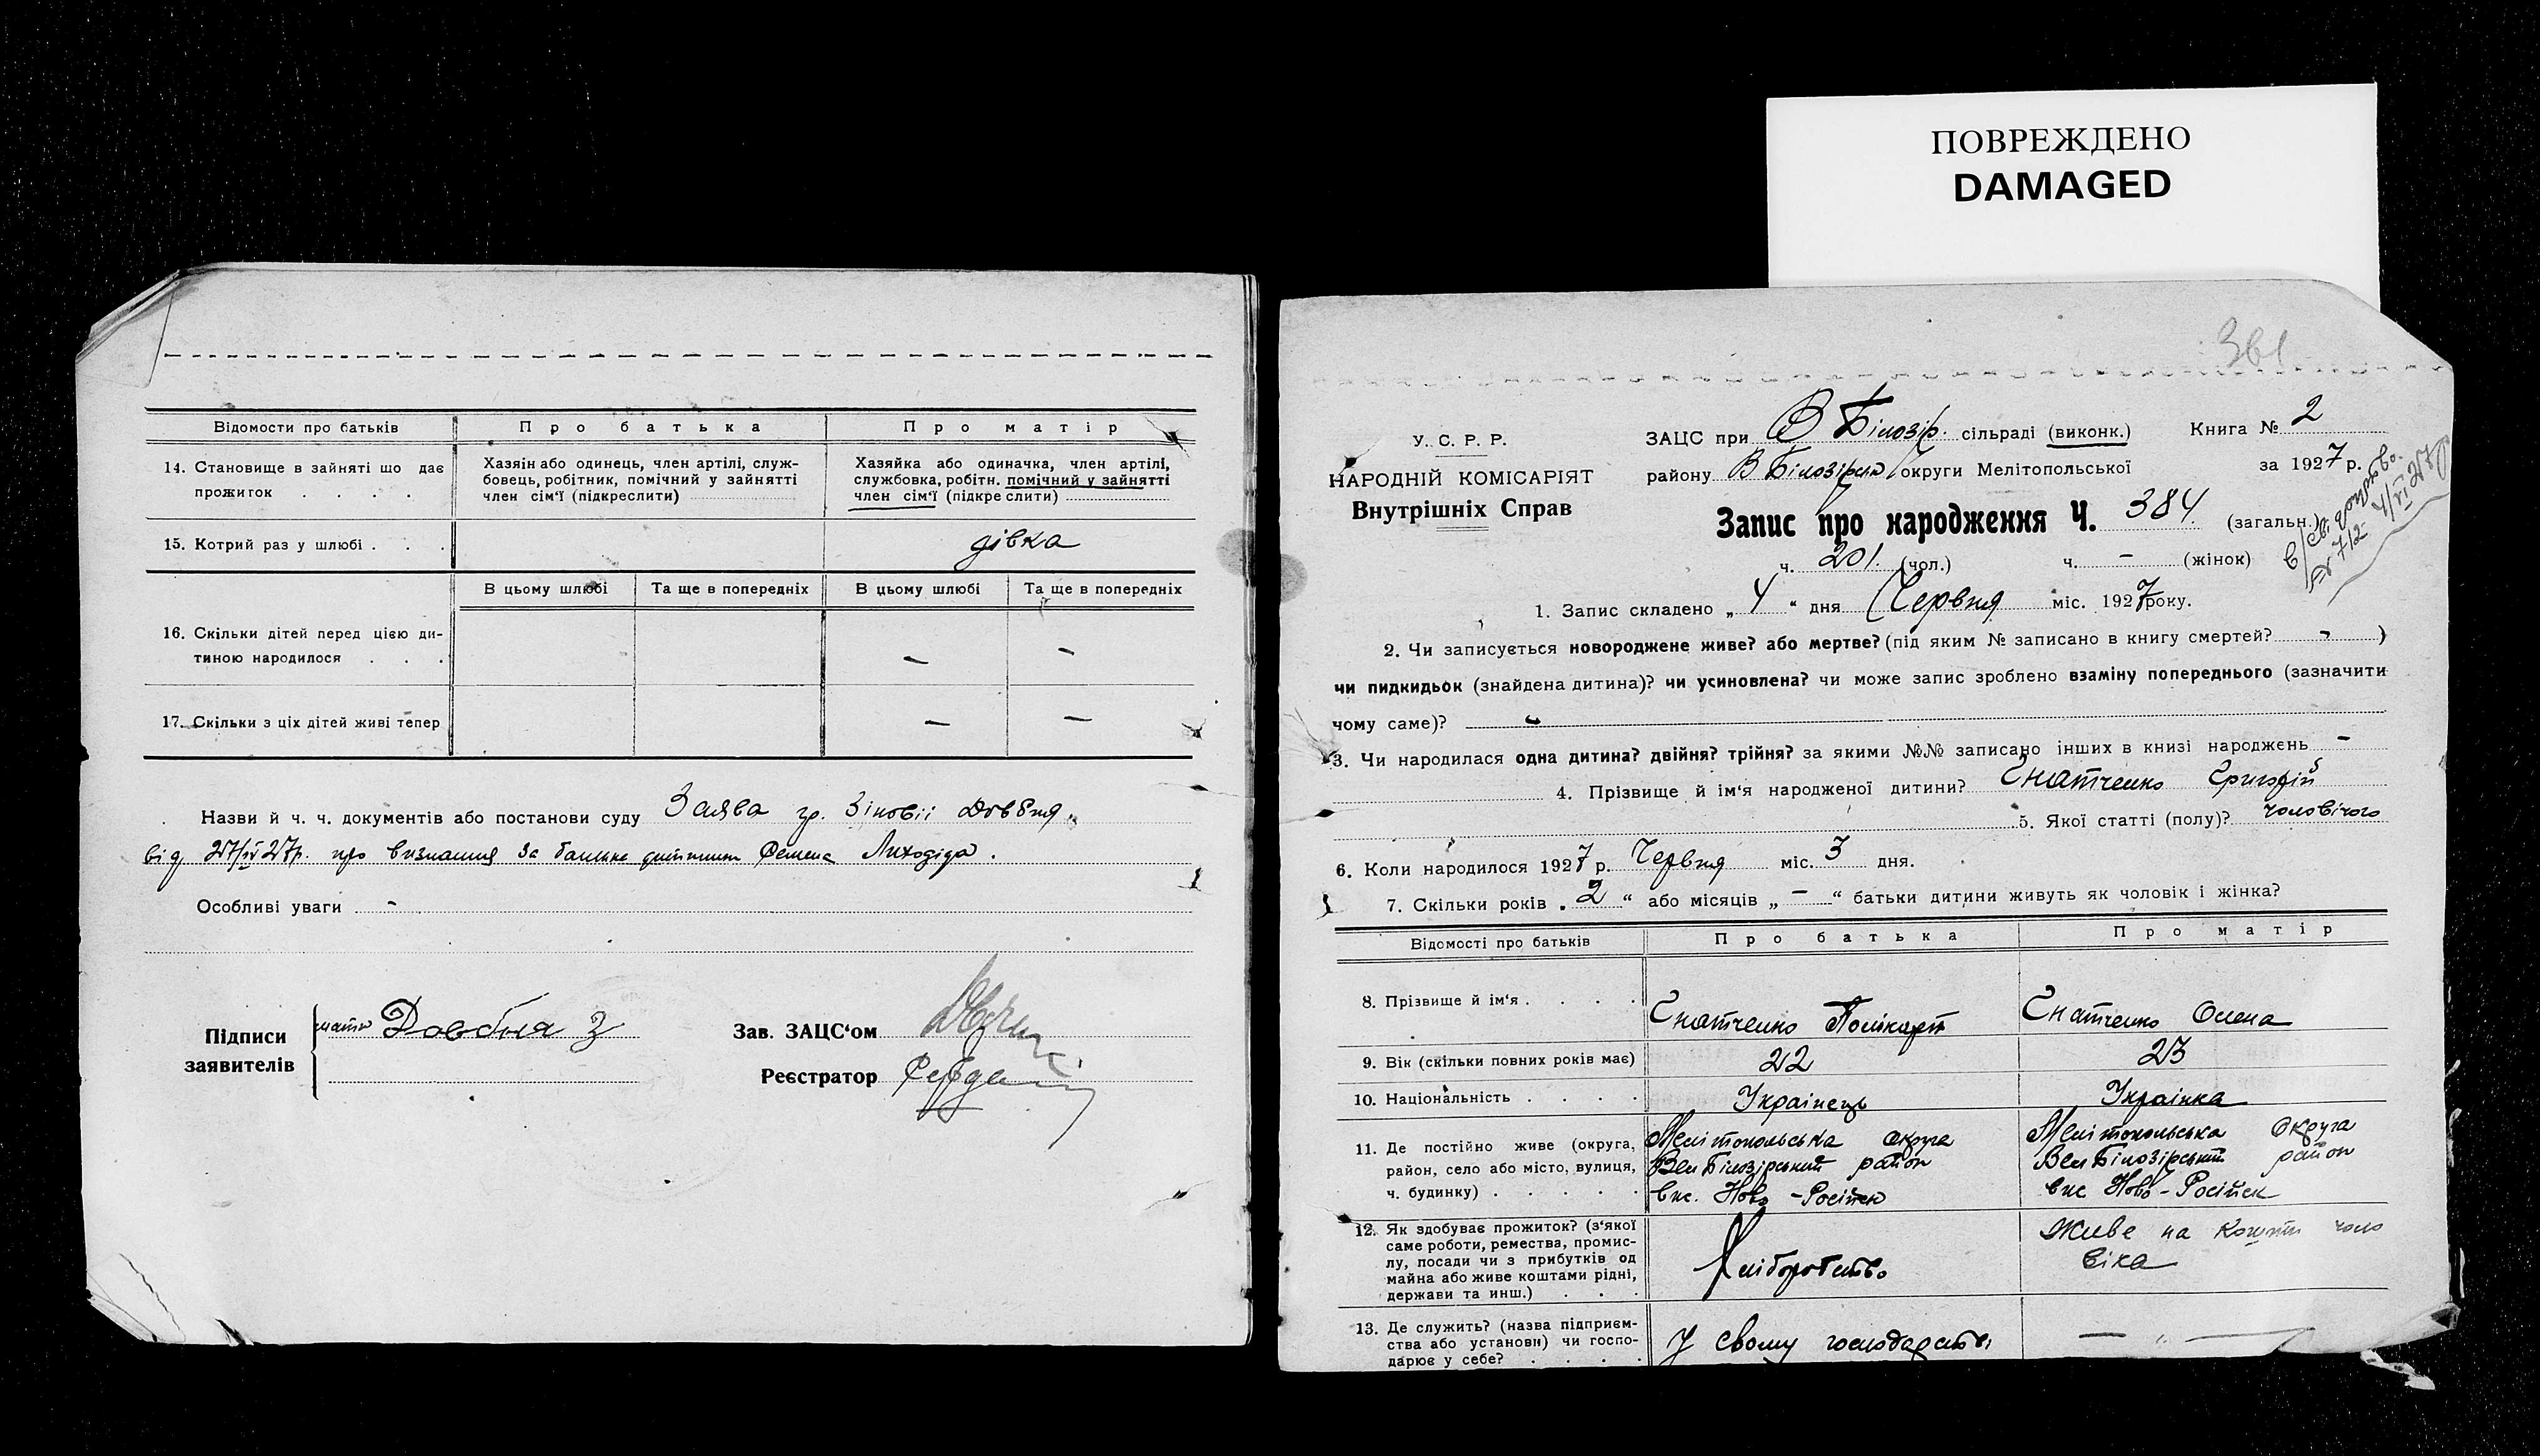 ПОВРЕЖДЕНО
DAMAGED
Відомости про батьків
Про батька
Про матір
14. Становище в зайняті що дає
прожиток . . . .
Хазяїн або одинець, член артілі, служ-
бовець, робітник, помічний у зайнятті
член сім'ї (підкреслити)
Хазяйка або одиначка, член артілі,
службовка, робітн. помічний у зайнятті
член сім'ї (підкреслити)
15. Котрий раз у шлюбі . . .
дівка
В цьому шлюбі
Та ще в попередніх
В цьому шлюбі
Та ще в попередніх
16. Скільки дітей перед цією ди-
тиною народилося . . .
— —
17. Скільки з ціх дітей живі тепер
— —
Назви й ч. ч. документів або постанови суду Заява гр. Зіновії Довбня
від 27/IV 27р. про визнання за батька дитини Семена Лиходіда.
Особливі уваги -
Підписи
заявителів
мати Довбня З
Зав. ЗАЦС'ом
Реєстратор
361
У. С. Р. Р.
НАРОДНІЙ КОМІСАРІЯТ
Внутрішніх Справ
ЗАЦС при В Білозір. сільраді (виконк.) Книга № 2
району В Білозірськ округи Мелітопольської за 1927 р.
Запис про народження Ч. 384. (загальн.)
ч. 201. (чол.) ч. – (жінок)
№ 712
1. Запис складено „ 4 “ дня Червня міс. 1927 року.
2. Чи записується новороджене живе? або мертве? (під яким № записано в книгу смертей? - )
чи пидкидьок (знайдена дитина)? чи усиновлена? чи може запис зроблено взаміну попереднього (зазначити
чому саме)?
3. Чи народилася одна дитина? двійня? трійня? за якими №№ записано інших в книзі народжень -
4. Прізвище й ім'я народженої дитини? Гнатченко Григорій
5. Якої статті (полу)? чоловічого
6. Коли народилося 1927 р. Червня міс. 3 дня.
7. Скільки років „ 2 “ або місяців „ – “ батьки дитини живуть як чоловік і жінка?
Відомості про батьків
Про батька
Про матір
8. Прізвище й ім'я . . . .
Гнатченко Полікарп
Гнатченко Олена
9. Вік (скільки повних років має)
22
23
10. Національність . . . .
Українець
Українка
11. Де постійно живе (округа,
район, село або місто, вулиця,
ч. будинку) . . . . .
Мелітопольська округа
Вел Білозірський район
вис. Ново-Російськ
Мелітопольська округа
Вел Білозірський район
вис Ново-Російськ
12. Як здобуває прожиток? (з'якої
саме роботи, ремества, промис-
лу, посади чи з прибутків од
майна або живе коштами рідні,
держави та инш.) . . .
Хліборобство
Живе на кошти чоло
віка
13. Де служить? (назва підприєм-
ства або установи) чи госпо-
дарює у себе? . . . .
У свому господарстві
— „ —